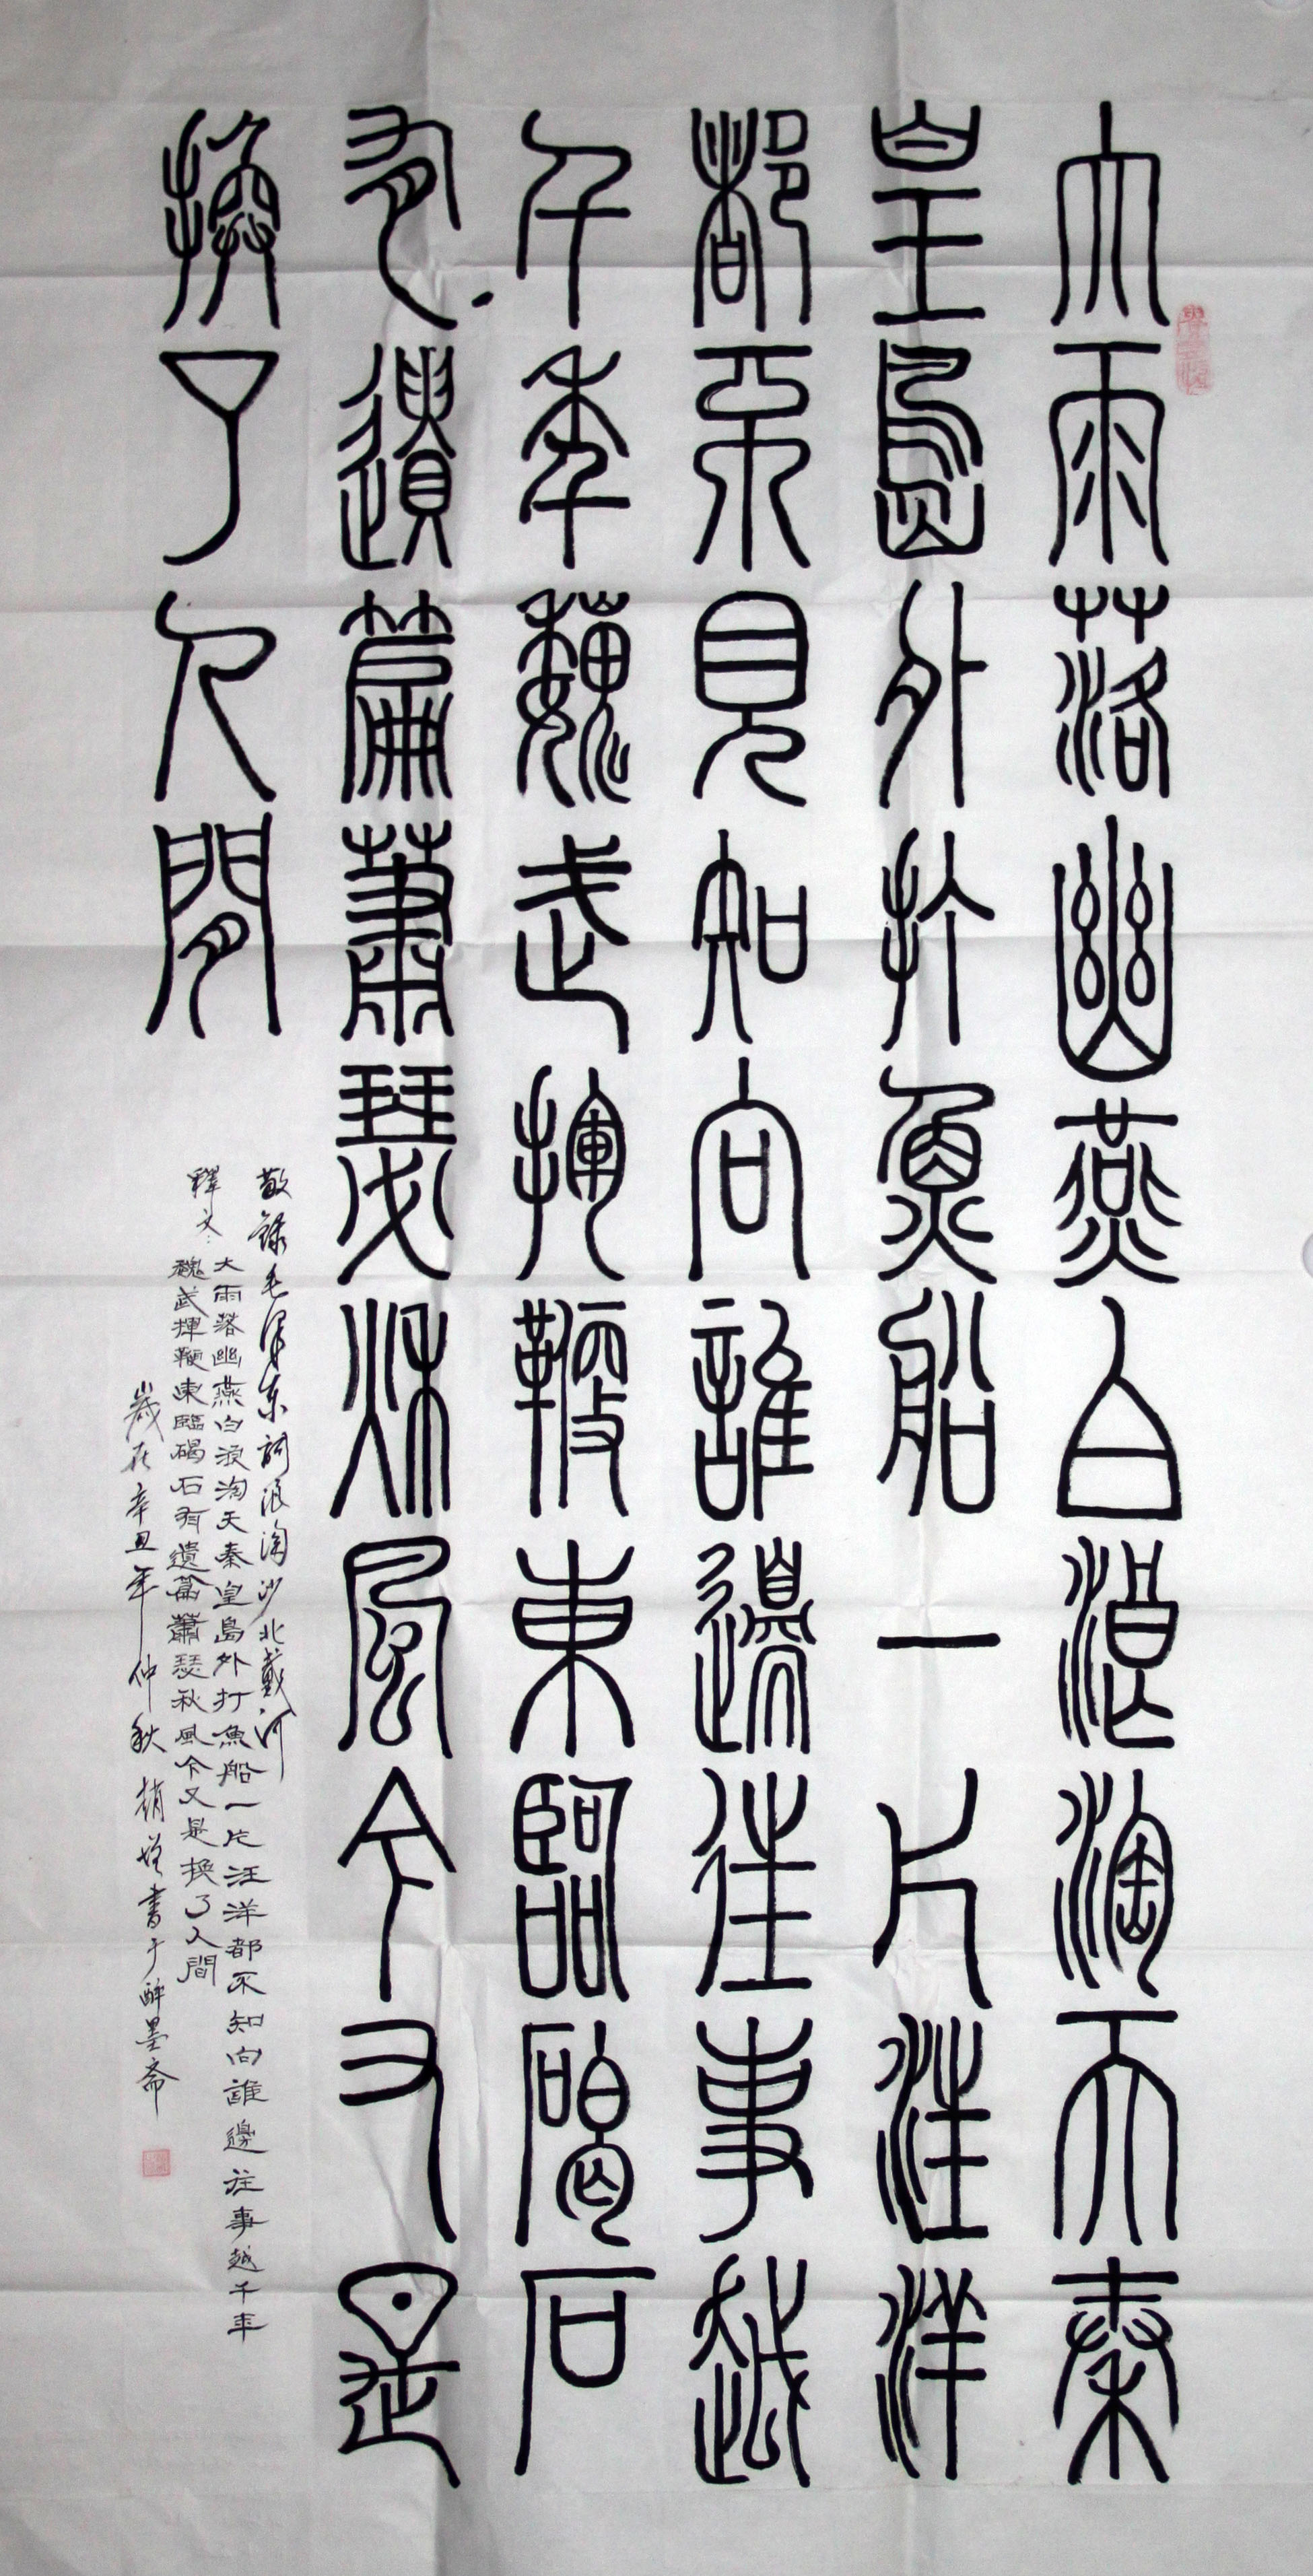 大雨落幽燕白浪淘天秦
皇島外打魚船一片汪洋
都不見知向誰邊往事越
千年魏武揮鞭東臨碣石
有遺篇蕭瑟秋風今又是
換了人間
敬錄毛澤東詞浪淘沙北戴河
釋文
大雨落幽燕白浪淘天秦皇島外打魚船一片汪洋都不知向誰邊往事越千年
魏武揮鞭東臨碣石有遺篇蕭瑟秋風今又是換了人間
歲在辛丑年仲秋趙書于醉墨斋